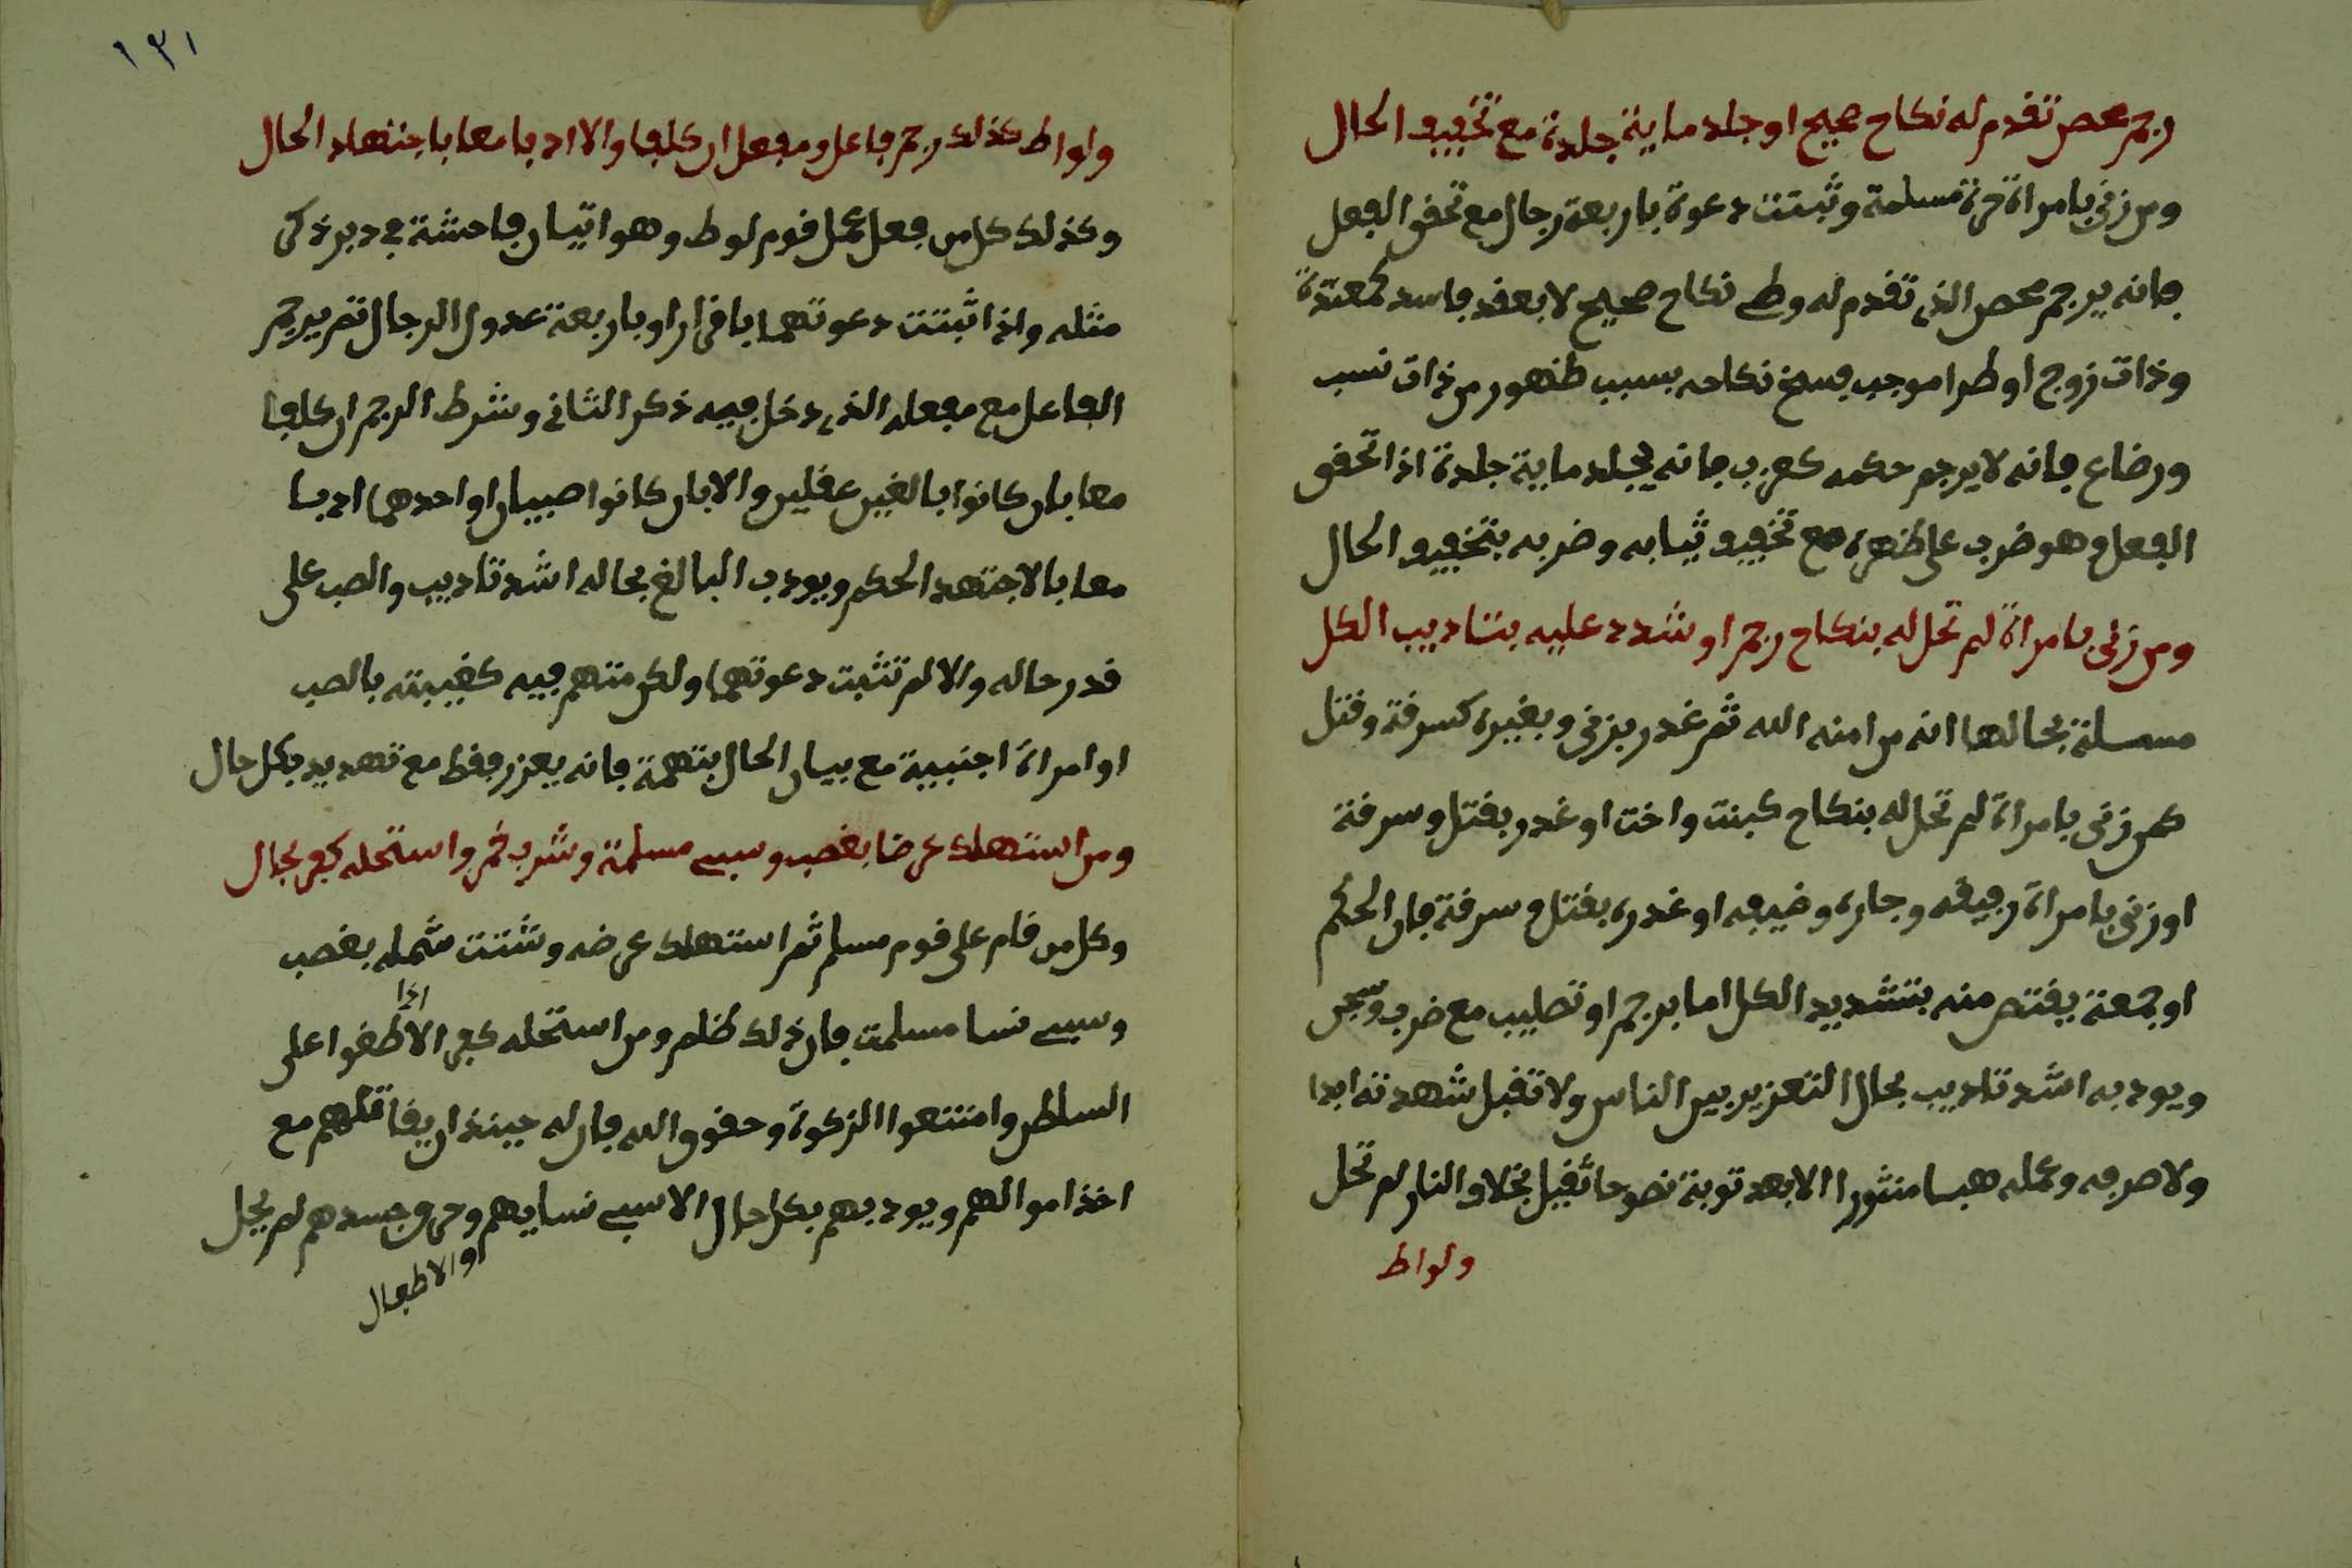 رجم محصن تقدم له نكاح صحيح او جلد ماية جلدة مع تخفيف الحال
ومن زنى بامراة حرة مسلمة وثبتت دعوة باربعة رجال مع تحقق الفعل
فانه يرجم محصن الذى تقدم له وطء نكاح صحيح لا بعقد فاسد كمعتدة
وذات زوج او طرا موجب فسخ نكاحه بسبب ظهور من ذات نسب
ورضاع فانه لا يرجم حكمه كعزب فانه يجلد ماية جلدة اذا تحقق
الفعل وهو ضرب على ظهره مع تخفيف ثيابه وضربه بتخفيف الحال
ومن زنى بامراة لم تحل له بنكاح رجم او شدد عليه بتاديب الكل
مسملة بحالها انه من امنه الله ثم غدر بزنى وبغيره كسرقة وقتل
كمن زنى بامراة لم تحل له بنكاح كبنت واخت او غدر بقتل وسرقة
او زنى بامراة رفيقه وجاره وضيفه او غدره بقتل وسرقة فان الحكم
او جمعة يقتص منه بتشديد الكل اما برجم او تصليب مع ضرب وسجن
ويودبه اشد تاديب بحال التعزير بين الناس ولا تقبل شهدته ابدا
ولا صرفه وعمله هبا منثورا الا بعد توبة نصوحا تقبل بخلاف النار لم تحل
ولواط
١٣١
ولواط كذلك رجم فاعل ومفعل ان كلفا والا ادبا معا باجتهاد الحال
وكذلك كل من فعل عمل قوم لوط وهو اتيان فاحشة في دبر ذكر
مثله واذا ثبتت دعوتهما باقرار او باربعة عدول الرجال ثم يرجم
الفاعل مع مفعله الذى دخل فيه ذكر الثاني وشرط الرجم ان كلفا
معا بان كانوا بالغين عقلين والا بان كانوا صبيان او احدهما ادبا
معا بالاجتهد الحكم ويودب البالغ بحاله اشد تاديب والصب على
قدر حاله والا لم تثبت دعوتهما ولكن متهم فيه كغيبته بالصب
او امراة اجنبية مع بيان الحال بتهمة فانه يعزر فقط مع تهديد بكل حال
ومن استهلك عرضا بغصب وسبى مسلمة وشرب خمر واستحله كفر بحال
وكل من قام على قوم مسلم ثم استهلك عرضه وشتت شمله بغصب
وسبى نسا مسلمت فان ذلك ظلم ومن استحله كفر الا اذا طغوا على
السلطن وامتنعوا الزكوة وحقوق الله فان له حينئذ ان يقاتلهم مع
اخذ اموالهم ويودبهم بكل حال الا سبى نسايهم وحرق جسدهم لم يحل
او الاطفال